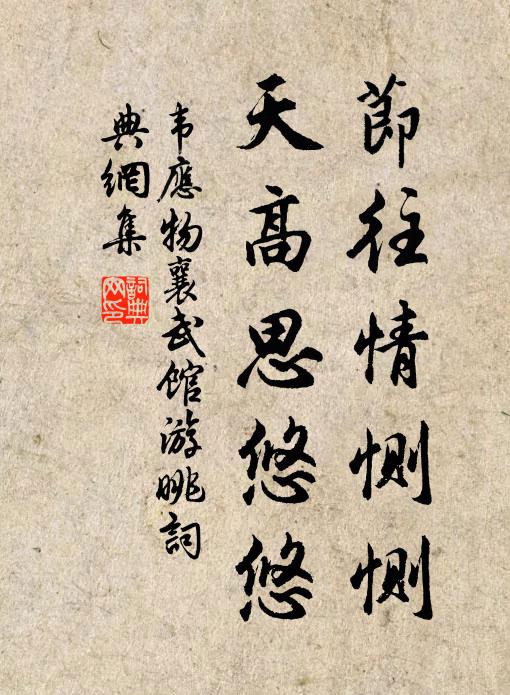 節往情惻惻
天高思悠悠
韦應物襄武館游眺詞
典網集
詞典
网印